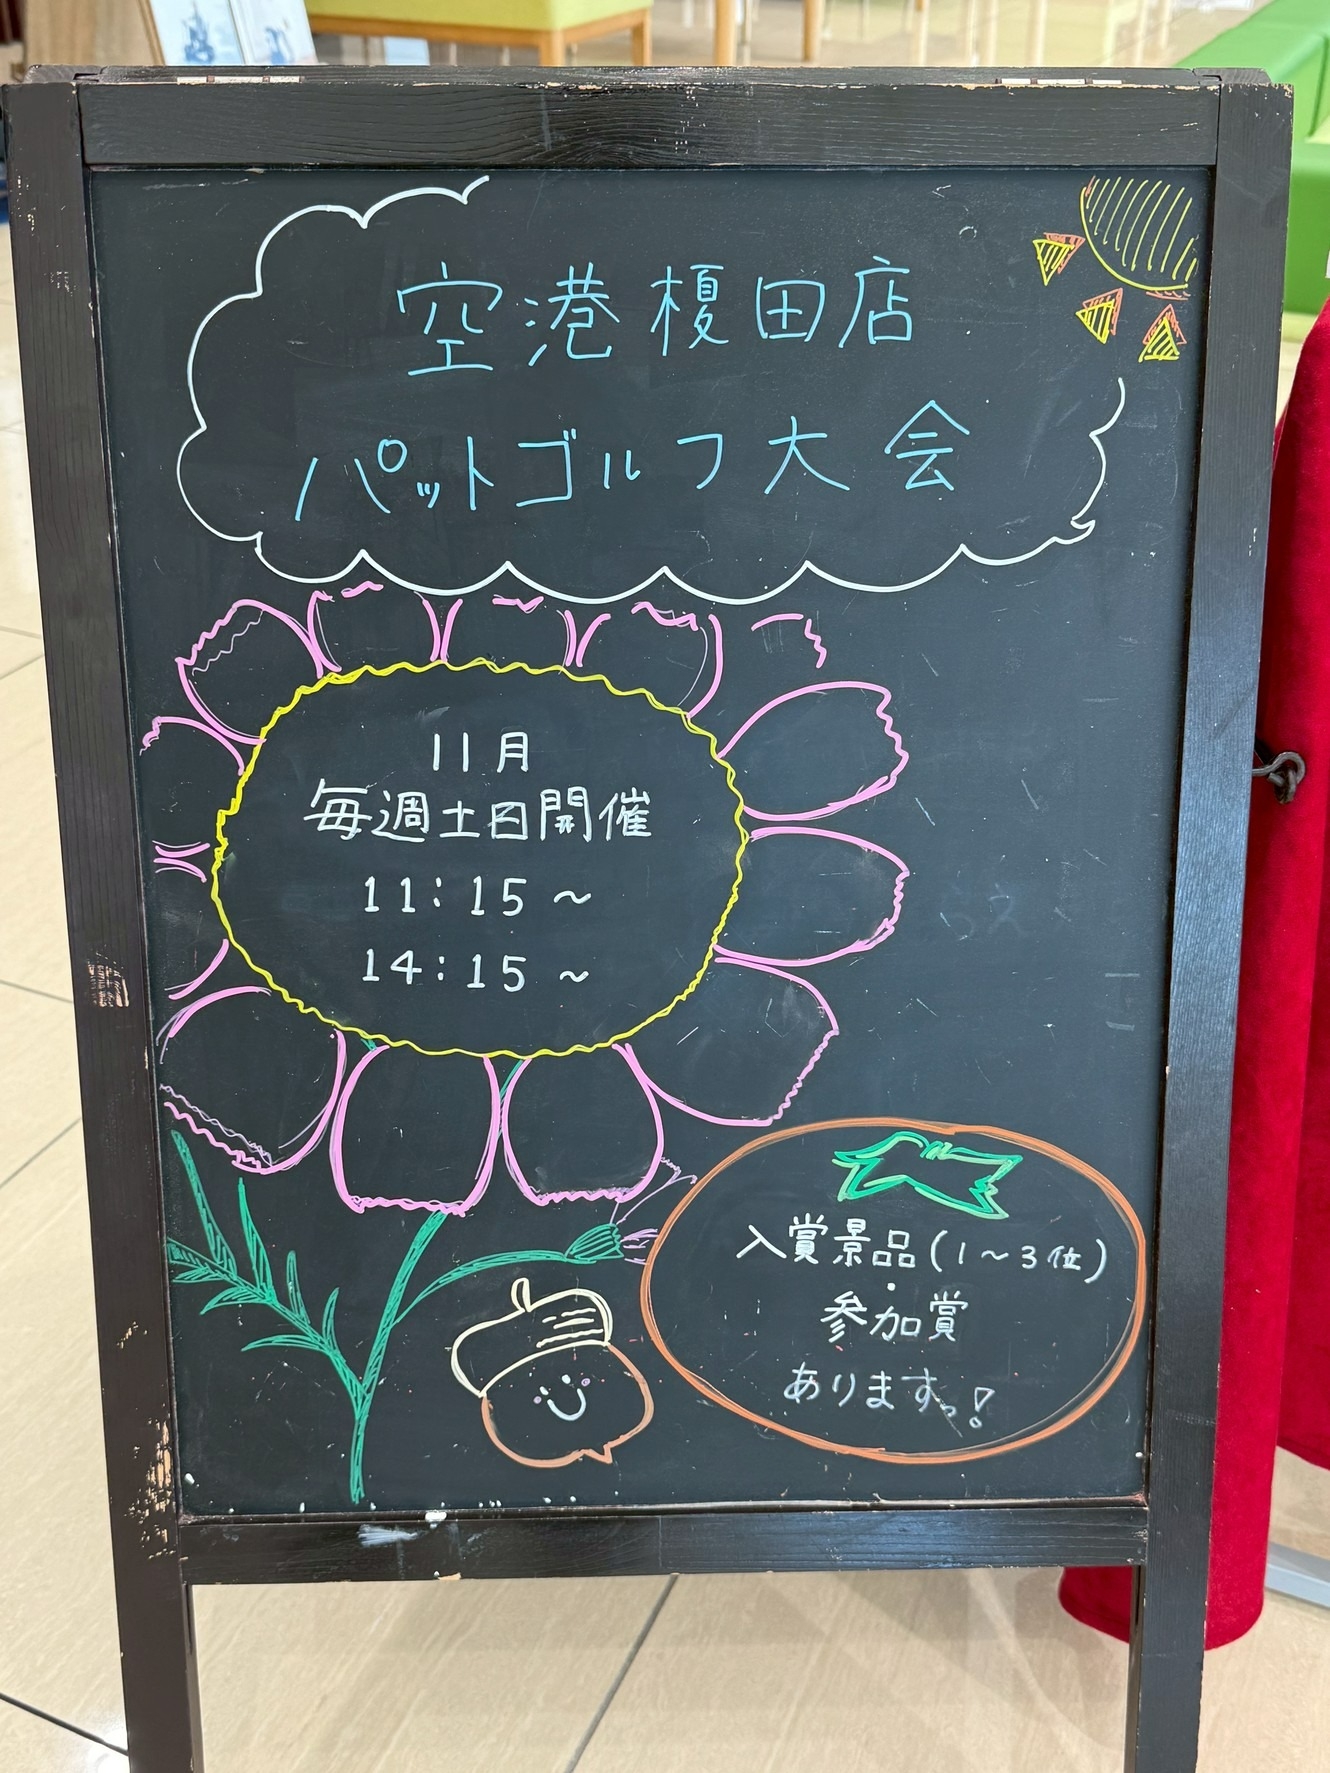 空港榎田店
パットゴルフ大会
11月
毎週土日開催
11:15 ～
14:15 ～
入賞景品(1～3位)
・
参加賞
ありますっ!